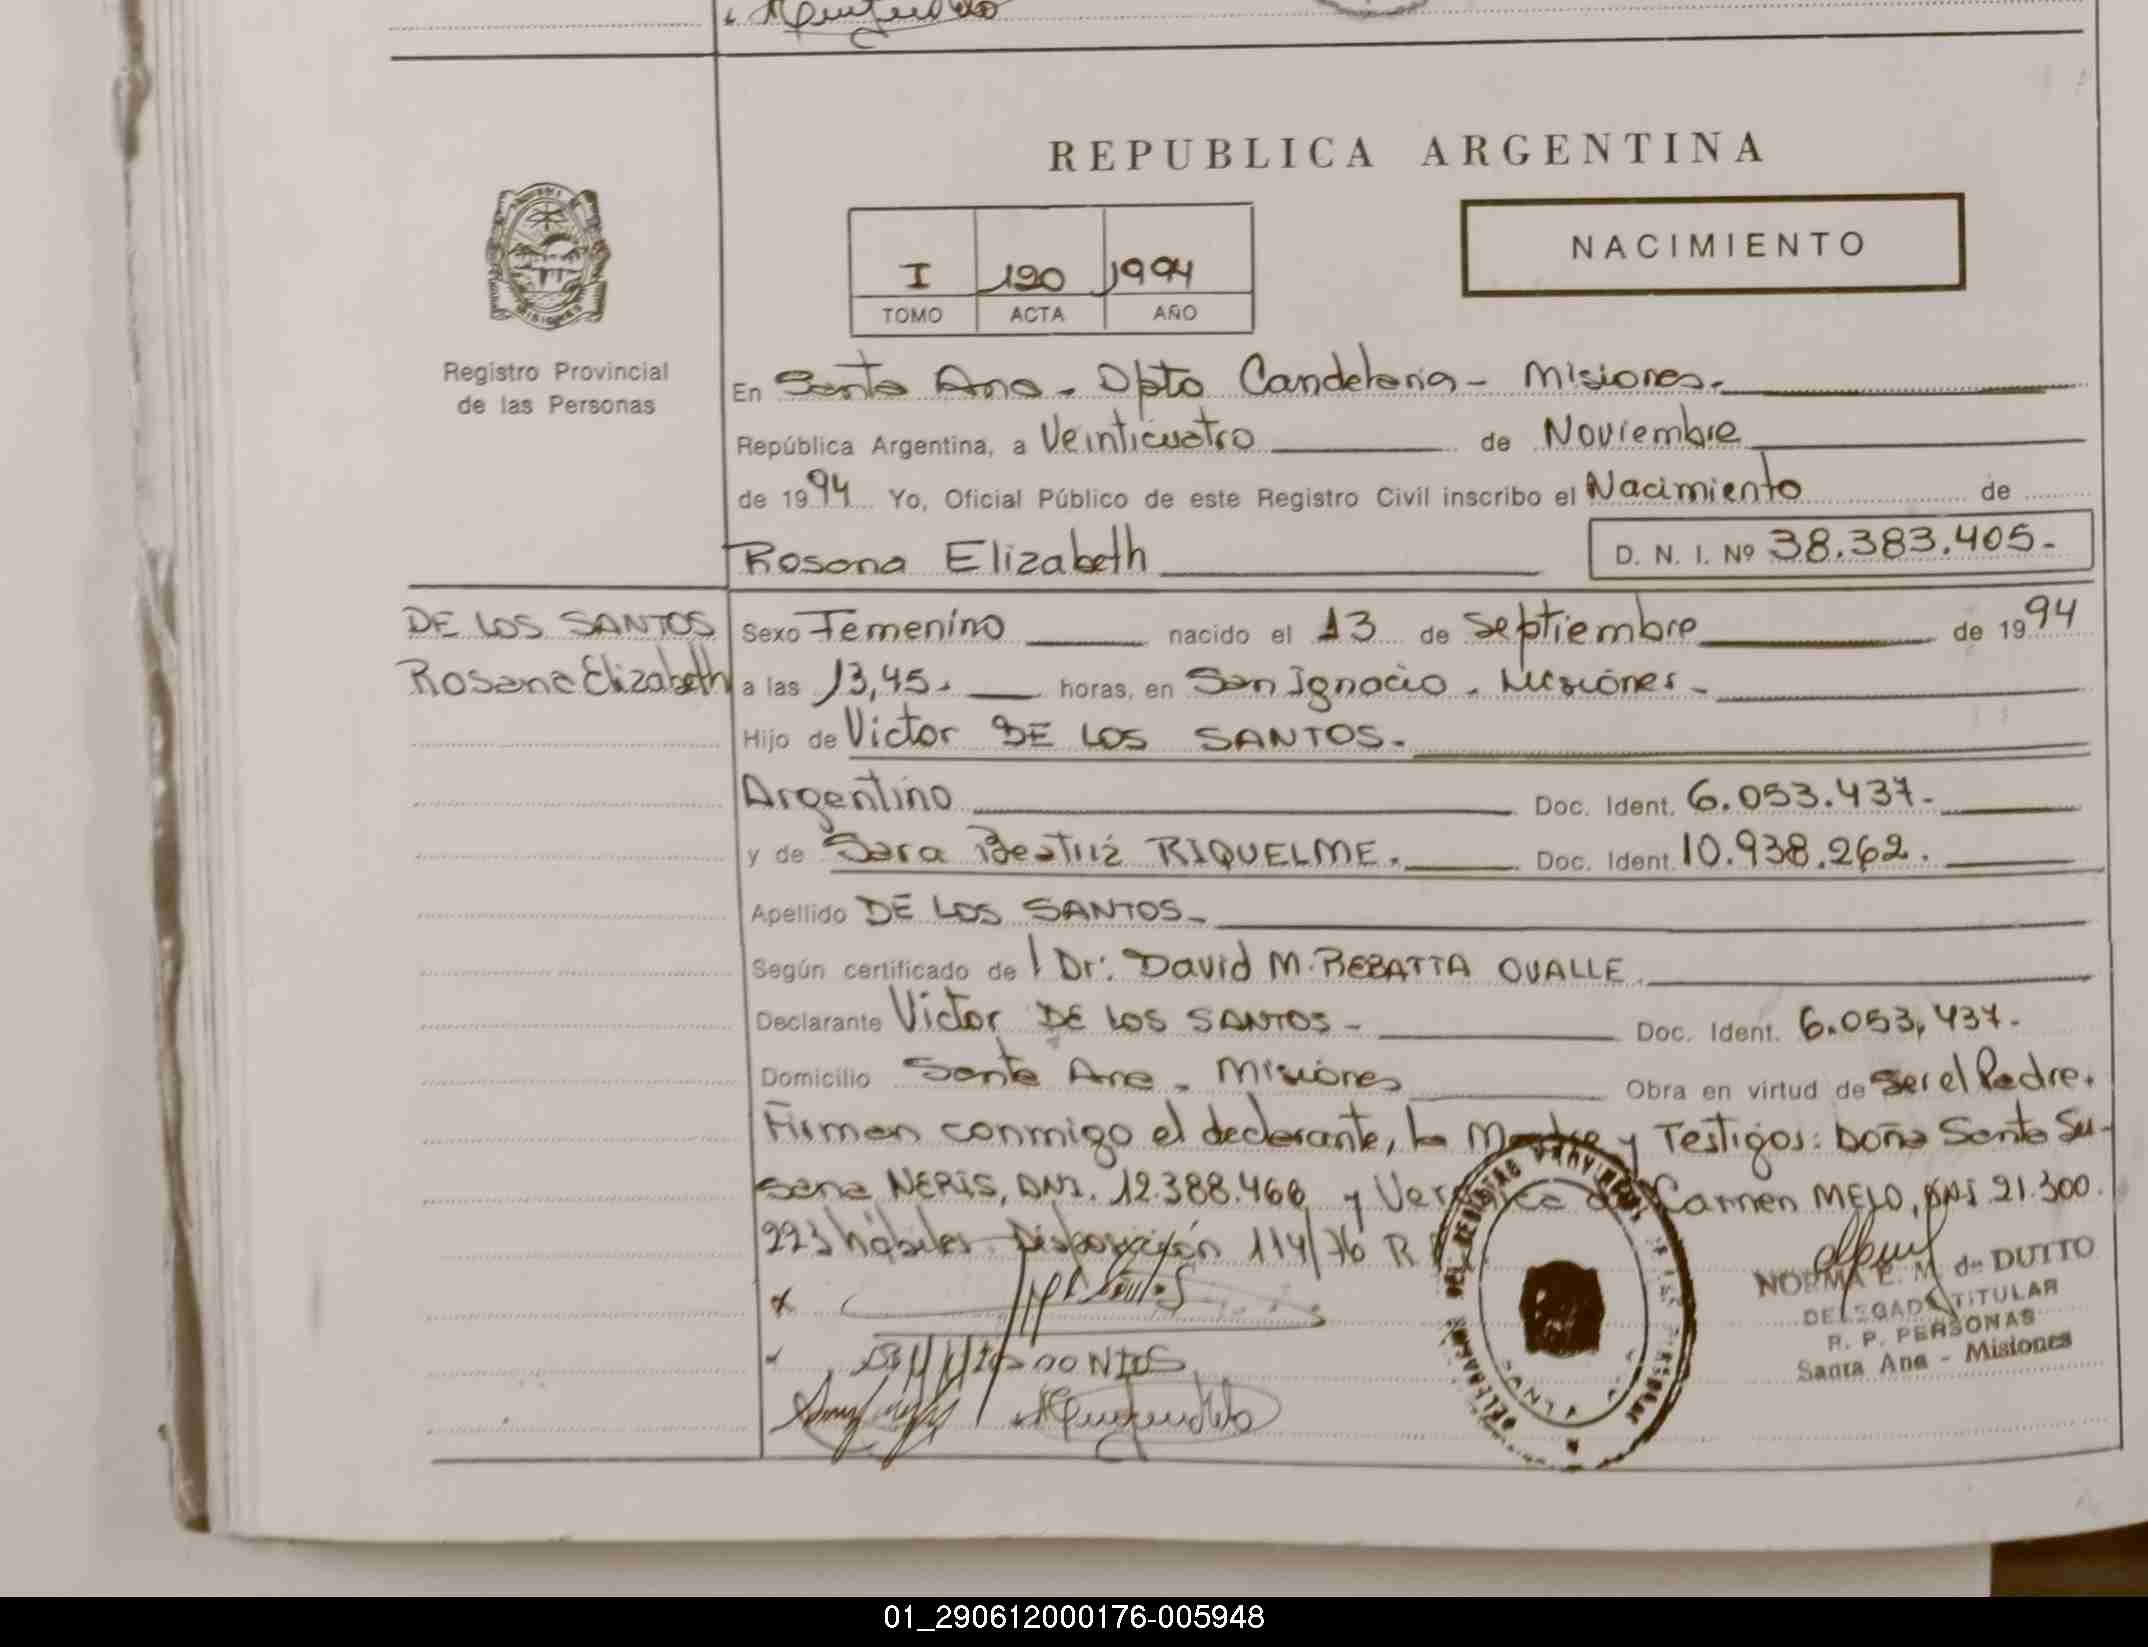 REPUBLICA ARGENTINA
NACIMIENTO
I 190 1994
TOMO ACTA AÑO
Registro Provincial
de las Personas
En Santa Ana - Dpto Candelaria - Misiones.
República Argentina, a Veinticuatro de Noviembre
de 1994 Yo, Oficial Público de este Registro Civil inscribo el Nacimiento de
Rosana Elizabeth D. N. I. Nº 38.383.405.-
DE LOS SANTOS
Rosana Elizabeth
Sexo Femenino nacido el 13 de Septiembre de 1994
a las 13,45. horas, en San Ignacio - Misiones -
Hijo de Victor DE LOS SANTOS.
Argentino Doc. Ident. 6.053.437.-
y de Sara Beatriz RIQUELME. Doc. Ident. 10.938.262.
Apellido DE LOS SANTOS -
Según certificado de l Dr: David M. REBATTA OVALLE.
Declarante Victor DE LOS SANTOS - Doc. Ident. 6.053,437.-
Domicilio Santa Ana - Misiones Obra en virtud de ser el Padre.
Firman conmigo el declarante, la Madre y Testigos: Doña Santa Su-
sana NERIS, DNI. 12.388.466 y del Carmen MELO, DNI 21.300.
223 hábiles Disposición 114/76 R
NORMA E. M. de DUTTO
DELEGADA TITULAR
R. P. PERSONAS
Santa Ana - Misiones
01_290612000176-005948